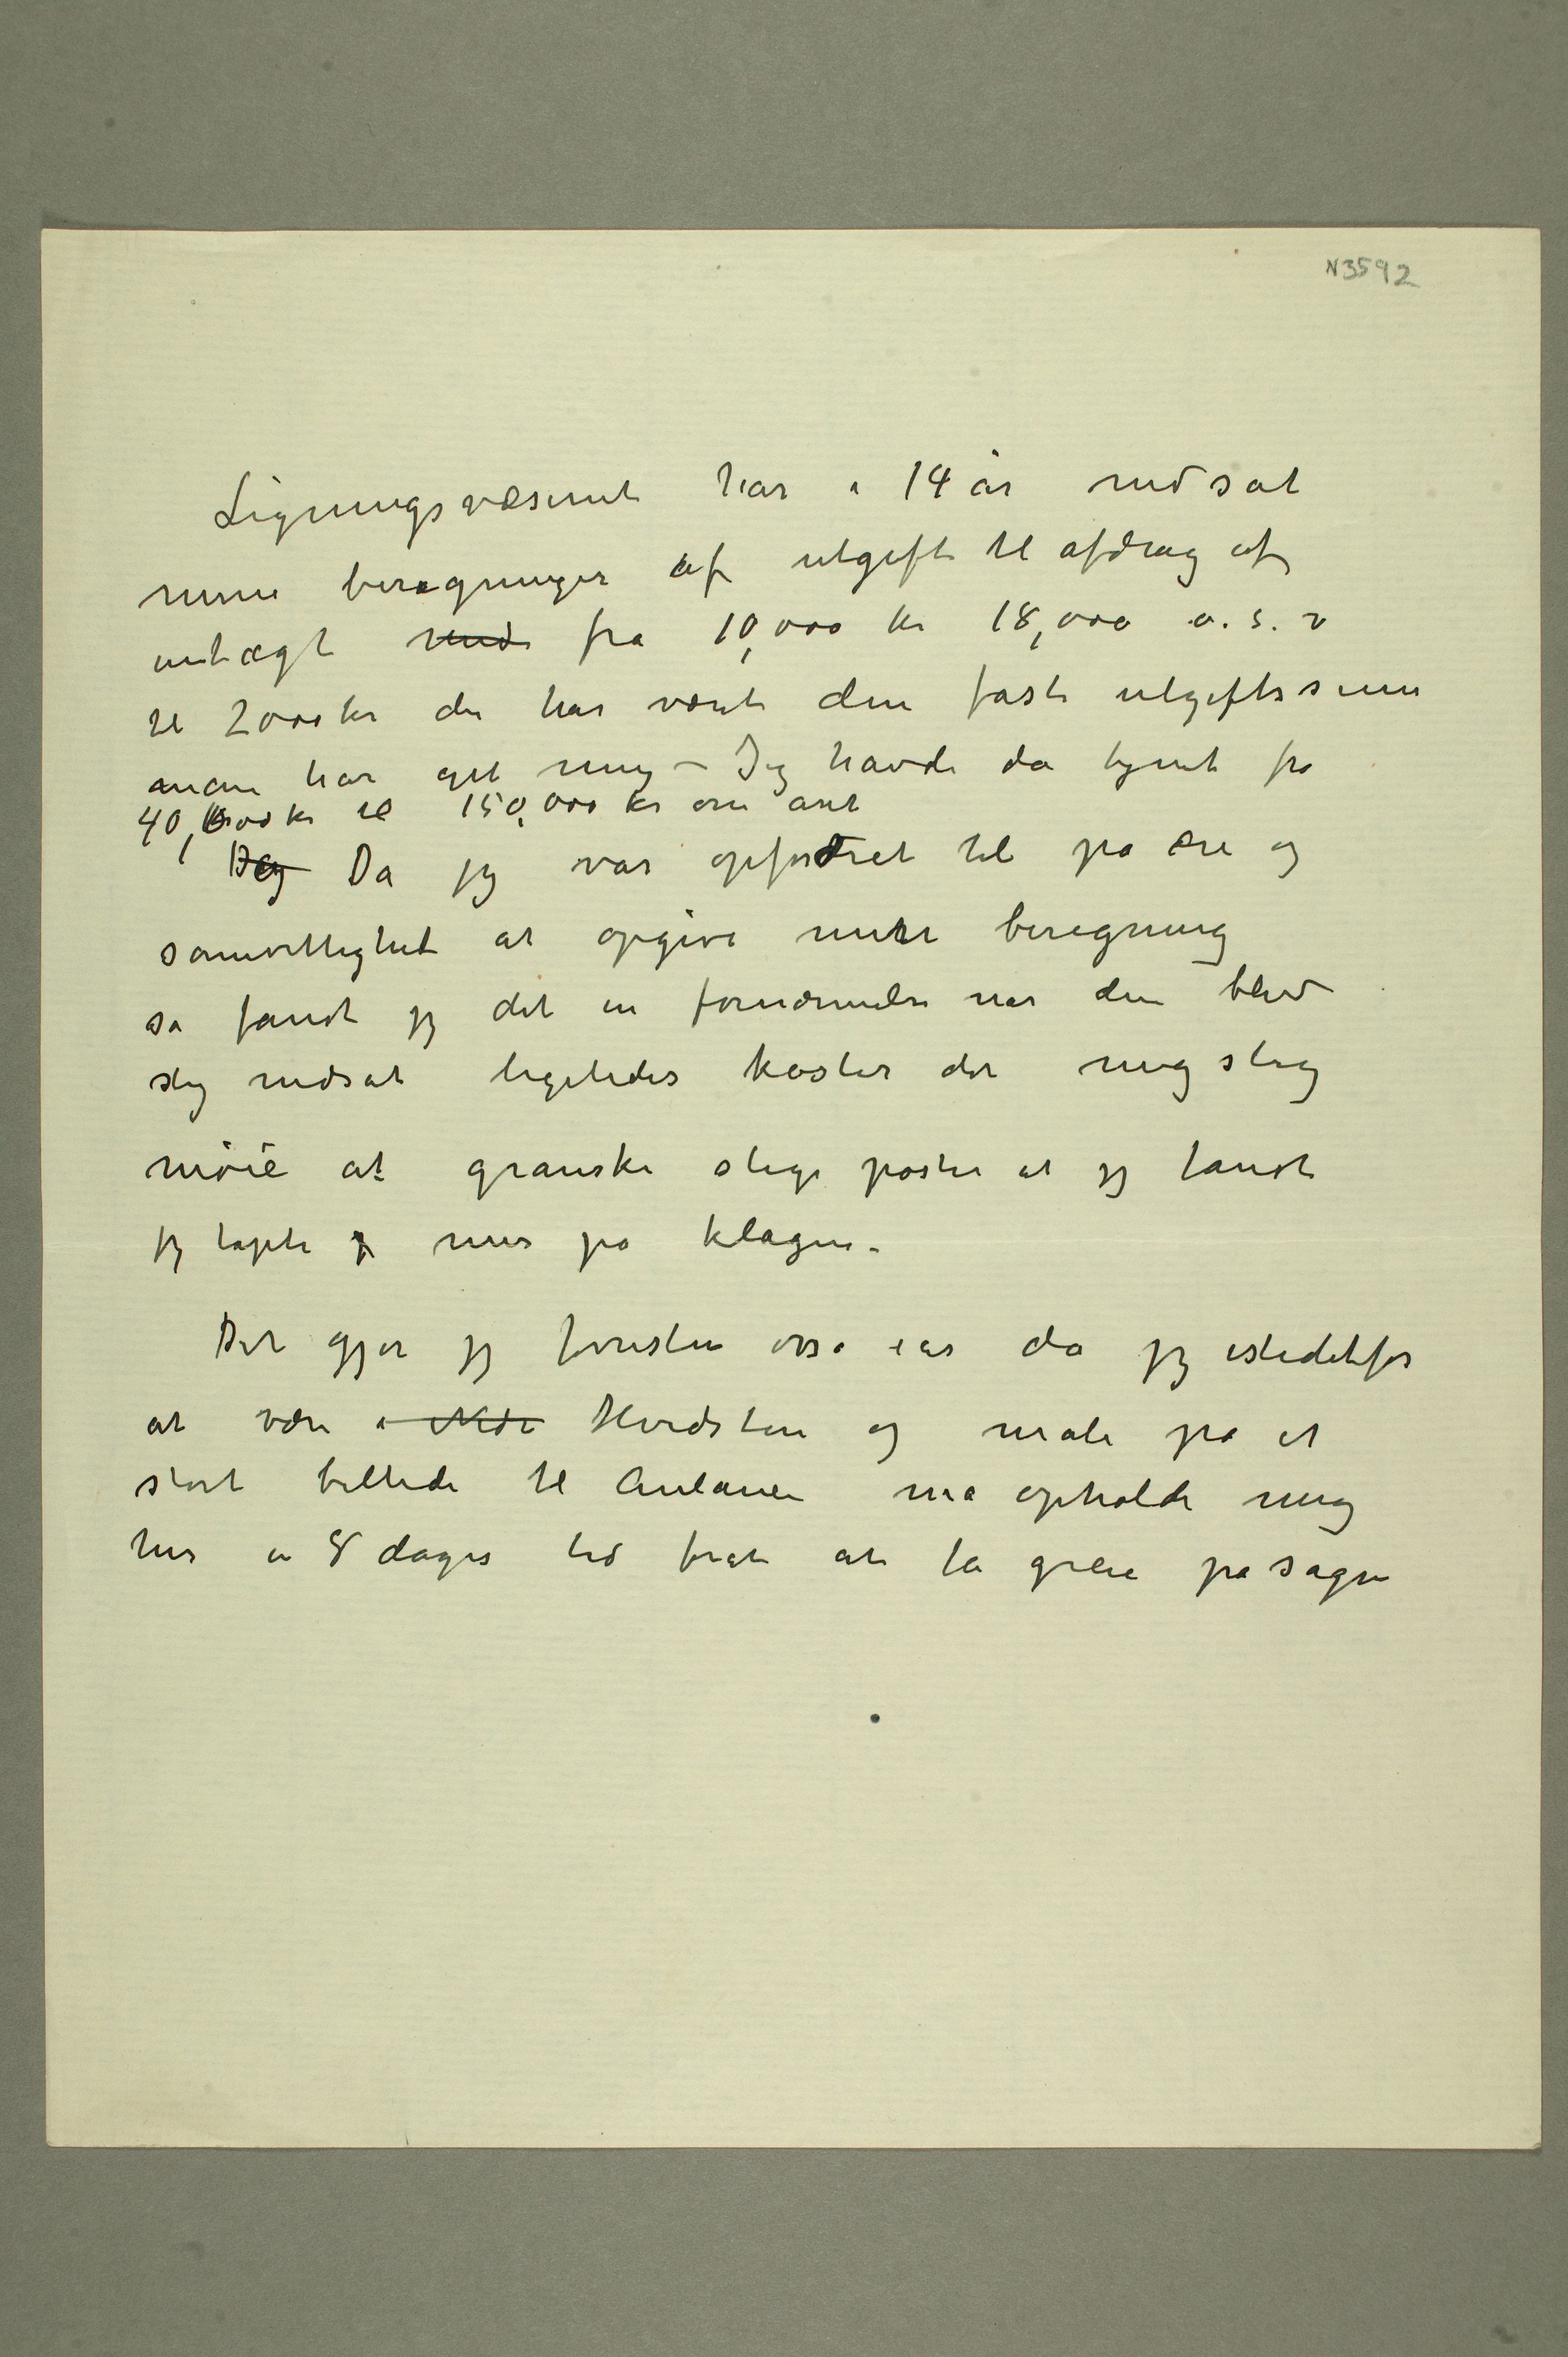 N3592
Ligningsvæsenet har i 14 år nedsat
mine beregninger af utgift til afdrag af
intægt fra 10,000 kr 18,000 o. s. v
til 2000 kr der har været den faste utgiftssum
man har git mig – Jeg havde da tjent fra
40,000 kr til 150,000 kr om året
Jeg Da jeg var opfordret til på ære og
samvittighed at opgive mine beregning
så fandt jeg det en fornærmelse når den blev
slig nedsat ligeledes koster det mig slig
møie at granske slige poster at jeg fandt
jeg tapte mer på klagen.
Det gjør jeg foresten også i år da jeg istedetfor
at være i Hvidsten og male på et
stort billede til Aulaen må opholde mig
her en 8 dages tid forat at få greie på sagen